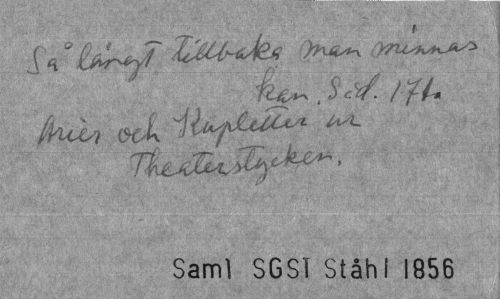 Så långt tillbaka man minnas
kan. Sid. 171.
Arier och Kupletter ur
Theaterstycken.
Saml SGSI Ståhl 1856